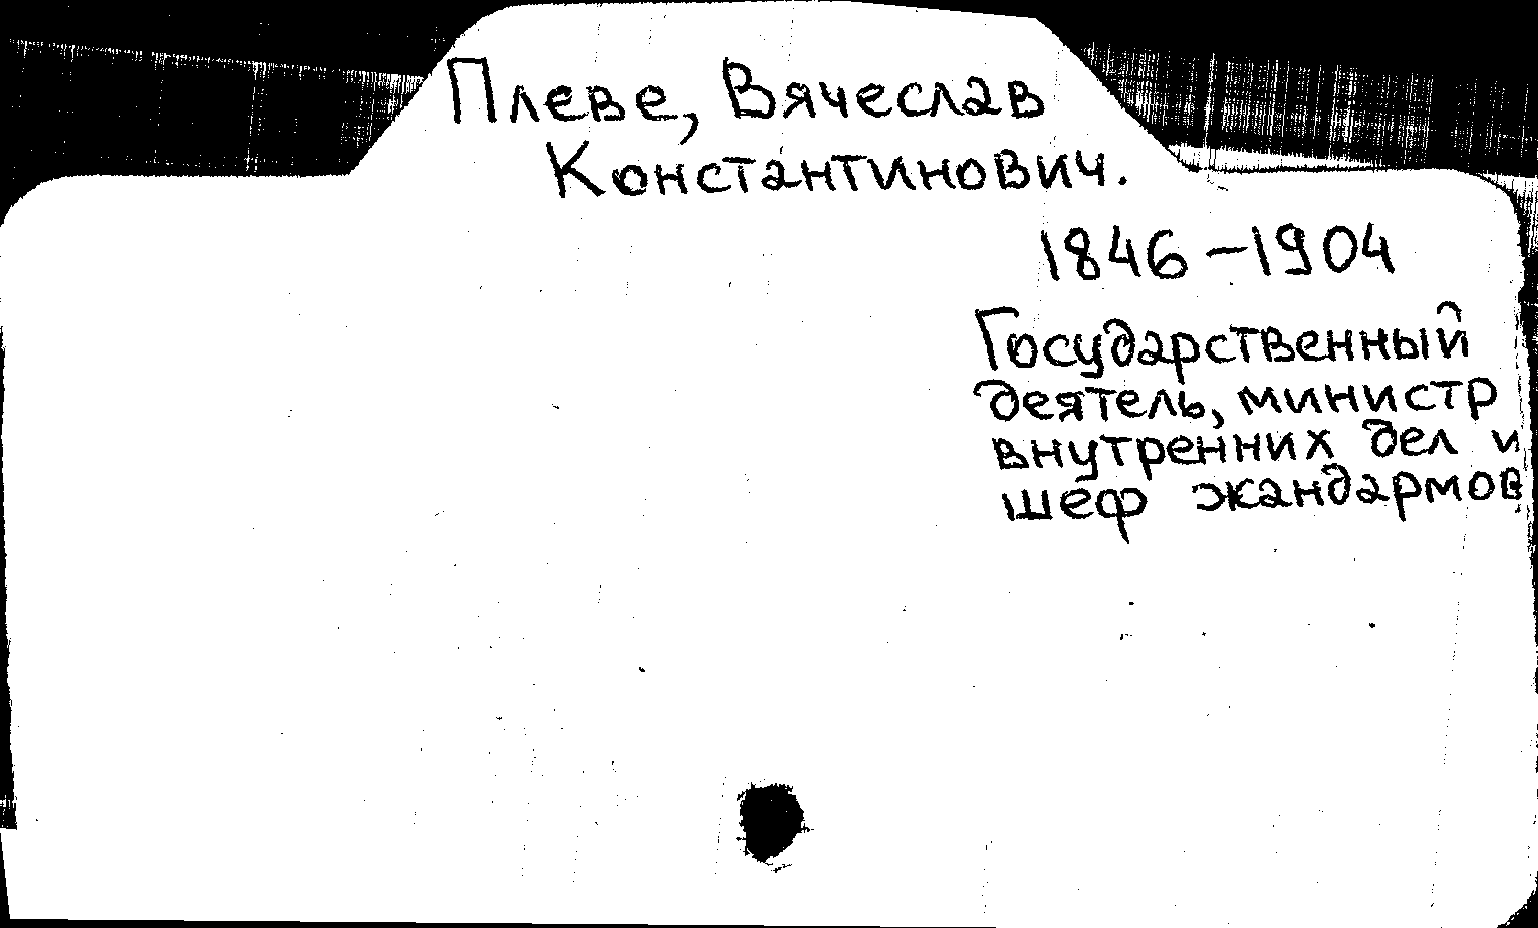 Плеве, Вячеслав
Константинович.
1846-1904
Государственный
деятель, министр
внутренних дел и
шеф жандармов